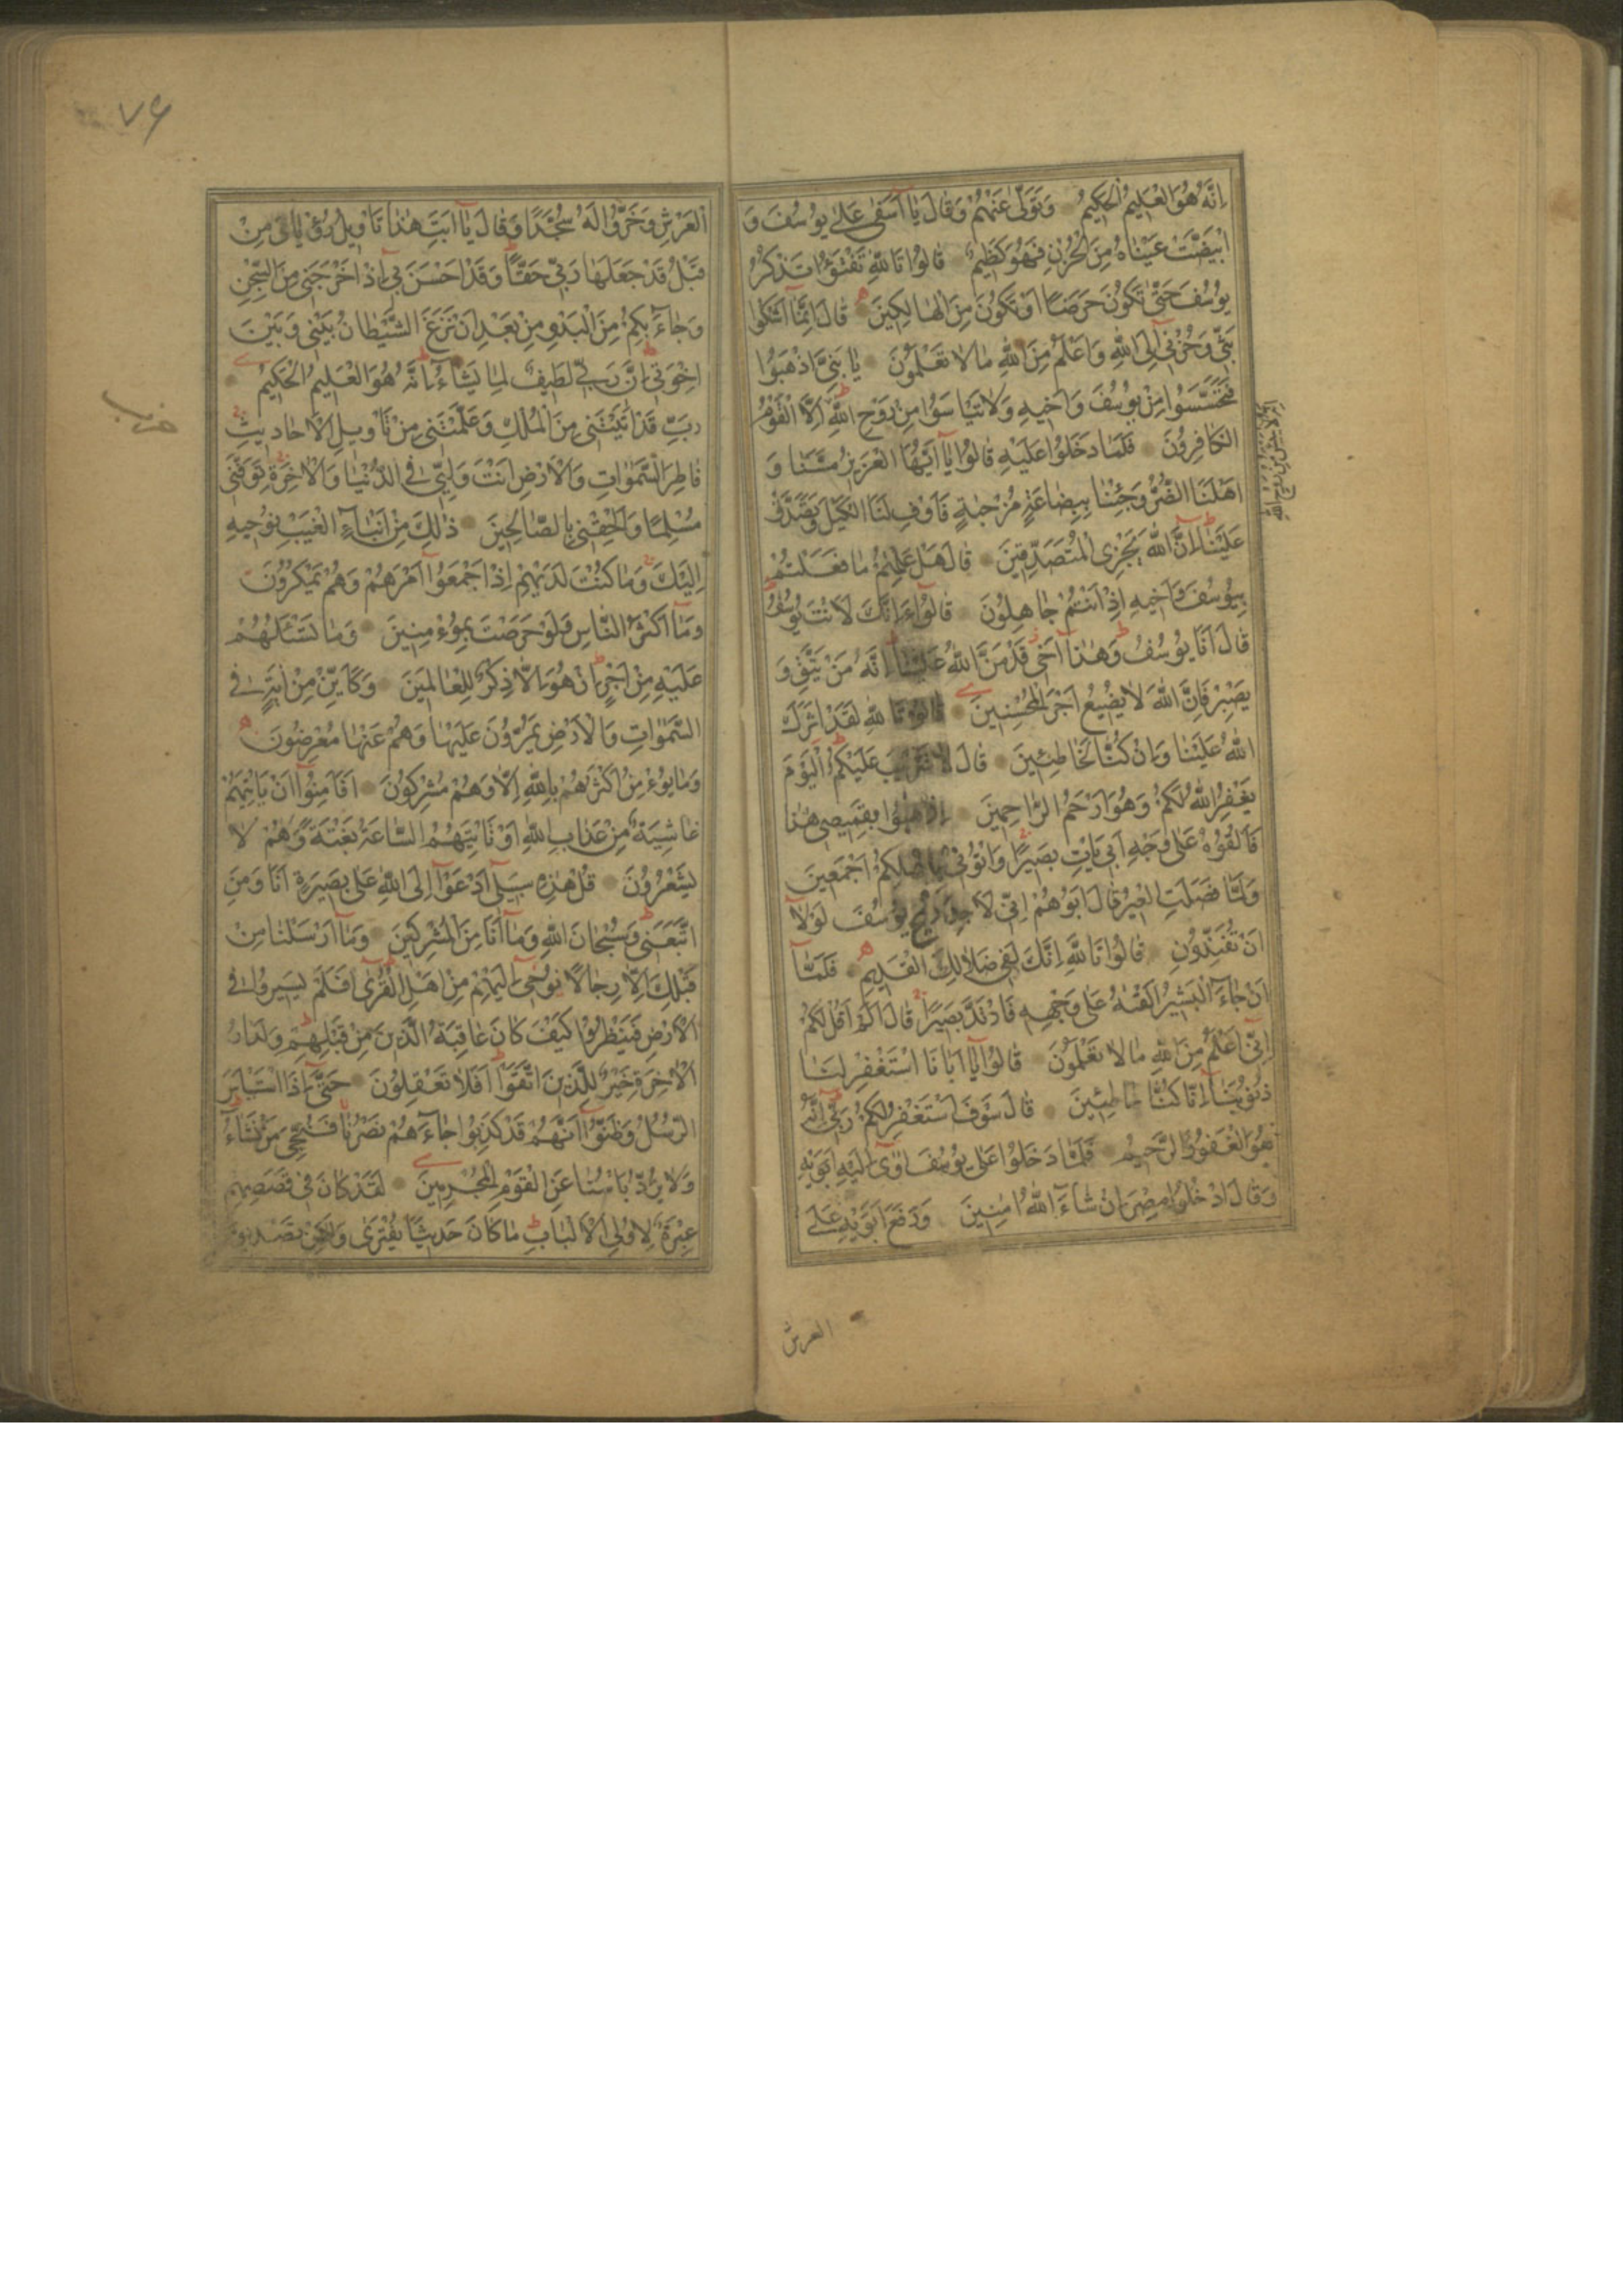 اِنَّهُ هُوَ الْعَلِيمُ الْحَكِيمُ وَتَوَلّٰى عَنْهُمْ وَقَالَ يَا اَسَفٰى عَلٰى يُوسُفَ وَ
ابْيَضَّتْ عَيْنَاهُ مِنَ الْحُزْنِ فَهُوَ كَظِيمٌ قَالُوا تَاللّٰهِ تَفْتَؤُا تَذْكُرُ
يُوسُفَ حَتّٰى تَكُونَ حَرَضًا اَوْ تَكُونَ مِنَ الْهَالِكِينَ قَالَ اِنَّمَا اَشْكُوا
بَثِّى وَحُزْنِى اِلَى اللّٰهِ وَاَعْلَمُ مِنَ اللّٰهِ مَا لَا تَعْلَمُونَ يَا بَنِىَّ اذْهَبُوا
فَتَحَسَّسُوا مِنْ يُوسُفَ وَاَخِيهِ وَلَا تَيْاَسُوا مِنْ رَوْحِ اللّٰهِ اِلَّا الْقَوْمُ
الْكَافِرُونَ فَلَمَّا دَخَلُوا عَلَيْهِ قَالُوا يَا اَيُّهَا الْعَزِيزُ مَسَّنَا وَ
اَهْلَنَا الضُّرُّ وَجِئْنَا بِبِضَاعَةٍ مُزْجٰيةٍ فَاَوْفِ لَنَا الْكَيْلَ وَتَصَدَّقْ
عَلَيْنَا اِنَّ اللّٰهَ يَجْزِى الْمُتَصَدِّقِينَ قَالَ هَلْ عَلِمْتُمْ مَا فَعَلْتُمْ
بِيُوسُفَ وَاَخِيهِ اِذْ اَنْتُمْ جَاهِلُونَ قَالُوا ءَاِنَّكَ لَاَنْتَ يُوسُفُ
قَالَ اَنَا يُوسُفُ وَهٰذَا اَخِى قَدْ مَنَّ اللّٰهُ عَلَيْنَا اِنَّهُ مَنْ يَتَّقِ وَ
يَصْبِرْ فَاِنَّ اللّٰهَ لَا يُضِيعُ اَجْرَ الْمُحْسِنِينَ قَالُوا تَاللّٰهِ لَقَدْ اٰثَرَكَ
اللّٰهُ عَلَيْنَا وَاِنْ كُنَّا لَخَاطِئِينَ قَالَ لَا تَثْرِيبَ عَلَيْكُمُ الْيَوْمَ
يَغْفِرُ اللّٰهُ لَكُمْ وَهُوَ اَرْحَمُ الرَّاحِمِينَ اِذْهَبُوا بِقَمِيصِى هٰذَا
فَاَلْقُوهُ عَلٰى وَجْهِ اَبِى يَاْتِ بَصِيرًا وَاْتُونِى بِاَهْلِكُمْ اَجْمَعِينَ
وَلَمَّا فَصَلَتِ الْعِيرُ قَالَ اَبُوهُمْ اِنِّى لَاَجِدُ رِيحَ يُوسُفَ لَوْلَا
اَنْ تُفَنِّدُونِ قَالُوا تَاللّٰهِ اِنَّكَ لَفِى ضَلَالِكَ الْقَدِيمِ فَلَمَّا
اَنْ جَاءَ الْبَشِيرُ اَلْقٰيهُ عَلٰى وَجْهِهِ فَارْتَدَّ بَصِيرًا قَالَ اَلَمْ اَقُلْ لَكُمْ
اِنِّى اَعْلَمُ مِنَ اللّٰهِ مَا لَا تَعْلَمُونَ قَالُوا يَا اَبَانَا اسْتَغْفِرْ لَنَا
ذُنُوبَنَا اِنَّا كُنَّا خَاطِئِينَ قَالَ سَوْفَ اَسْتَغْفِرُ لَكُمْ رَبِّى اِنَّهُ
هُوَ الْغَفُورُ الرَّحِيمُ فَلَمَّا دَخَلُوا عَلٰى يُوسُفَ اٰوٰى اِلَيْهِ اَبَوَيْهِ
وَقَالَ ادْخُلُوا مِصْرَ اِنْ شَاءَ اللّٰهُ اٰمِنِينَ وَرَفَعَ اَبَوَيْهِ عَلَى
العرش
٧٦
الْعَرْشِ وَخَرُّوا لَهُ سُجَّدًا وَقَالَ يَا اَبَتِ هٰذَا تَاْوِيلُ رُؤْيَاىَ مِنْ
قَبْلُ قَدْ جَعَلَهَا رَبِّى حَقًّا وَقَدْ اَحْسَنَ بِى اِذْ اَخْرَجَنِى مِنَ السِّجْنِ
وَجَاءَ بِكُمْ مِنَ الْبَدْوِ مِنْ بَعْدِ اَنْ نَزَغَ الشَّيْطَانُ بَيْنِى وَبَيْنَ
اِخْوَتِى اِنَّ رَبِّى لَطِيفٌ لِمَا يَشَاءُ اِنَّهُ هُوَ الْعَلِيمُ الْحَكِيمُ
حزب
رَبِّ قَدْ اٰتَيْتَنِى مِنَ الْمُلْكِ وَعَلَّمْتَنِى مِنْ تَاْوِيلِ الْاَحَادِيثِ
فَاطِرَ السَّمٰوَاتِ وَالْاَرْضِ اَنْتَ وَلِيِّى فِى الدُّنْيَا وَالْاٰخِرَةِ تَوَفَّنِى
مُسْلِمًا وَاَلْحِقْنِى بِالصَّالِحِينَ ذٰلِكَ مِنْ اَنْبَاءِ الْغَيْبِ نُوحِيهِ
اِلَيْكَ وَمَا كُنْتَ لَدَيْهِمْ اِذْ اَجْمَعُوا اَمْرَهُمْ وَهُمْ يَمْكُرُونَ
وَمَا اَكْثَرُ النَّاسِ وَلَوْ حَرَصْتَ بِمُؤْمِنِينَ وَمَا تَسْئَلُهُمْ
عَلَيْهِ مِنْ اَجْرٍ اِنْ هُوَ اِلَّا ذِكْرٌ لِلْعَالَمِينَ وَكَاَيِّنْ مِنْ اٰيَةٍ فِى
السَّمٰوَاتِ وَالْاَرْضِ يَمُرُّونَ عَلَيْهَا وَهُمْ عَنْهَا مُعْرِضُونَ
وَمَا يُؤْمِنُ اَكْثَرُهُمْ بِاللّٰهِ اِلَّا وَهُمْ مُشْرِكُونَ اَفَاَمِنُوا اَنْ تَاْتِيَهُمْ
غَاشِيَةٌ مِنْ عَذَابِ اللّٰهِ اَوْ تَاْتِيَهُمُ السَّاعَةُ بَغْتَةً وَهُمْ لَا
يَشْعُرُونَ قُلْ هٰذِهِ سَبِيلِى اَدْعُوا اِلَى اللّٰهِ عَلٰى بَصِيرَةٍ اَنَا وَمَنِ
اتَّبَعَنِى وَسُبْحَانَ اللّٰهِ وَمَا اَنَا مِنَ الْمُشْرِكِينَ وَمَا اَرْسَلْنَا مِنْ
قَبْلِكَ اِلَّا رِجَالًا نُوحِى اِلَيْهِمْ مِنْ اَهْلِ الْقُرٰى اَفَلَمْ يَسِيرُوا فِى
الْاَرْضِ فَيَنْظُرُوا كَيْفَ كَانَ عَاقِبَةُ الَّذِينَ مِنْ قَبْلِهِمْ وَلَدَارُ
الْاٰخِرَةِ خَيْرٌ لِلَّذِينَ اتَّقَوْا اَفَلَا تَعْقِلُونَ حَتّٰى اِذَا اسْتَيْاَسَ
الرُّسُلُ وَظَنُّوا اَنَّهُمْ قَدْ كُذِبُوا جَاءَهُمْ نَصْرُنَا فَنُجِّىَ مَنْ نَشَاءُ
وَلَا يُرَدُّ بَاْسُنَا عَنِ الْقَوْمِ الْمُجْرِمِينَ لَقَدْ كَانَ فِى قَصَصِهِمْ
عِبْرَةٌ لِاُولِى الْاَلْبَابِ مَا كَانَ حَدِيثًا يُفْتَرٰى وَلٰكِنْ تَصْدِيقَ